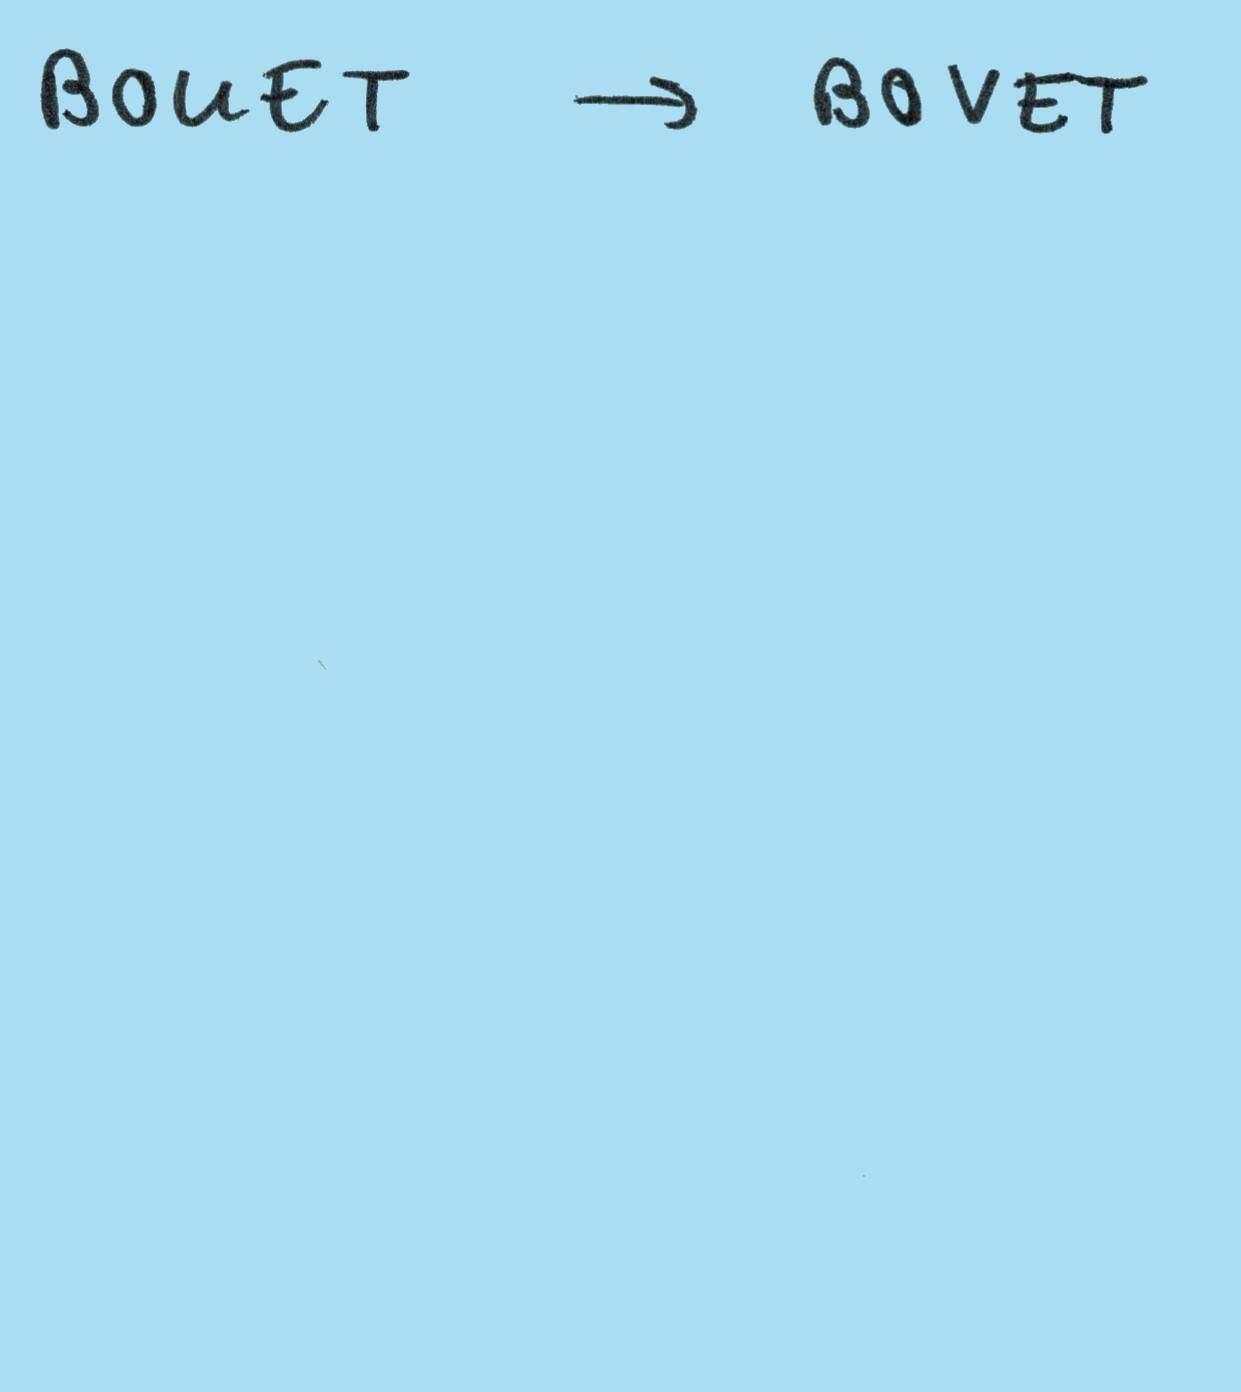 BOUET → BOVET